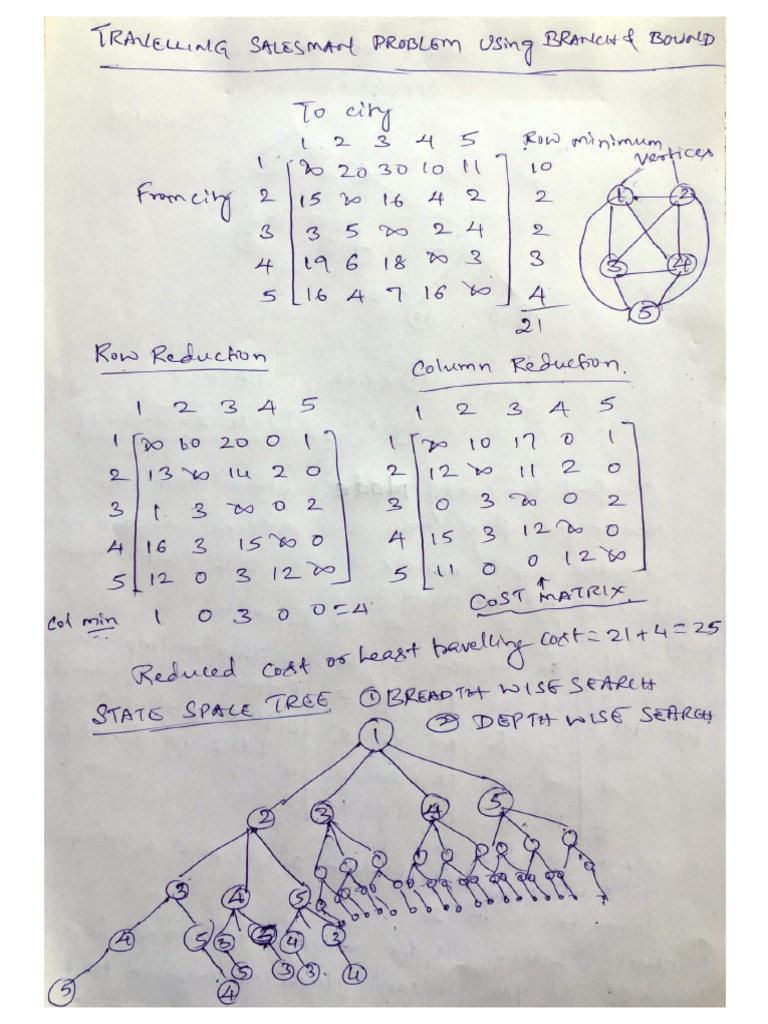 TRAVELLING SALESMAN PROBLEM using BRANCH & BOUND
To city
1 2 3 4 5 Row minimum
vertices
1 ∞ 20 30 10 11 10
From city 2 15 ∞ 16 4 2 2
3 3 5 ∞ 2 4 2
4 19 6 18 ∞ 3 3
5 16 4 7 16 ∞ 4
21
1 2
3 4
5
Row Reduction
Column Reduction.
1 2 3 4 5
1 ∞ 10 20 0 1
2 13 ∞ 14 2 0
3 1 3 ∞ 0 2
4 16 3 15 ∞ 0
5 12 0 3 12 ∞
col min 1 0 3 0 0 = 4
1 2 3 4 5
1 ∞ 10 17 0 1
2 12 ∞ 11 2 0
3 0 3 ∞ 0 2
4 15 3 12 ∞ 0
5 11 0 0 12 ∞
COST MATRIX.
Reduced cost or Least travelling cost = 21 + 4 = 25
STATE SPACE TREE ① BREADTH WISE SEARCH
② DEPTH WISE SEARCH
1
2 3 4 5
3 4 5
4 5 3 5 4 3
5 4 5 3 3 4